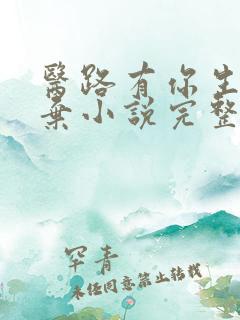 醫路有你生
棄小說完整
罕青
未經同意禁止轉載